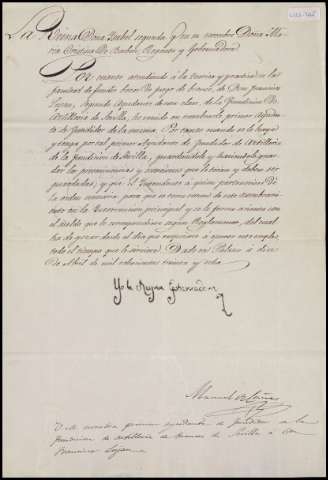 La Reina Doña Isabel segunda y en su nombre Doña Ma-
ria Cristina de Borbon, Regenta y Gobernadora
Por cuanto atendiendo á la teorica y practica en la
facultad de fundir bocas de fuego de bronce, de Don Francisco
Lujan, segundo Ayudante de esa clase, de la Fundicion de
Artilleria de Sevilla, he venido en nombrarlo primer Ayudan-
te de Fundidor de la misma. Por tanto mando se le haya
y tenga por tal primer Ayudante de Fundidor de Artilleria
de la fundicion de Sevilla, guardandole y haciendole guar-
dar las preeminencias y exenciones que le tocan y deben ser
guardadas; y que el Intendente á quien perteneciere dé
la orden necesaria, para que se tome razon de este nombramien-
to en la Intervencion principal y se le forme asiento con
el sueldo que le correspondiere segun Reglamento, del cual
ha de gozar desde el dia que empezare á
todo el tiempo que le sirviere. Dado en Palacio á diez
de Abril de mil ochocientos treinta y ocho.
Yo la Reyna Gobernadora
Manuel
V.M. nombra primer ayudante de fundidor de la
fundicion de artilleria de bronces de Sevilla á Don
Francisco Lujan